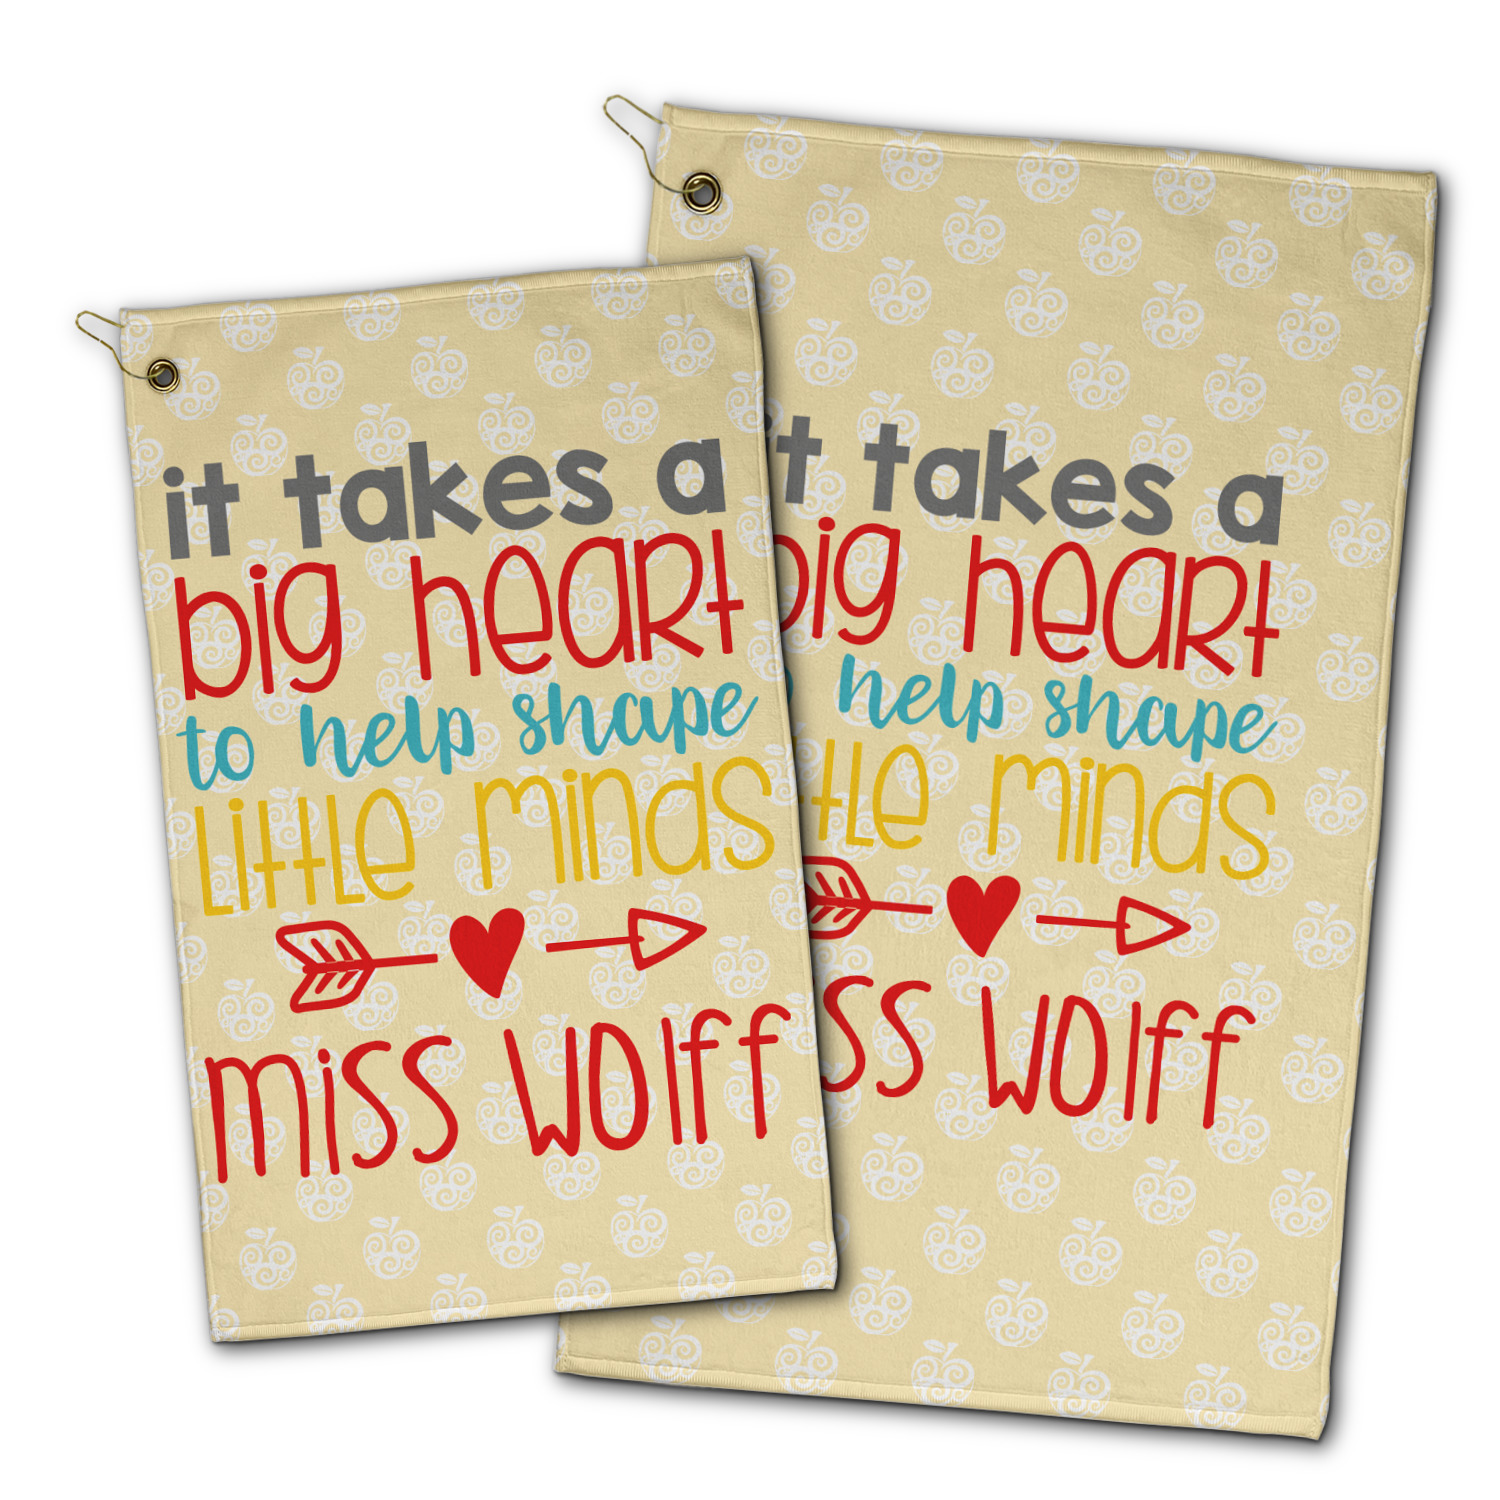 it takes a
big heart
to help shape
little minds
miss wolff
t takes a
big heart
help shape
tle minds
ss wolff